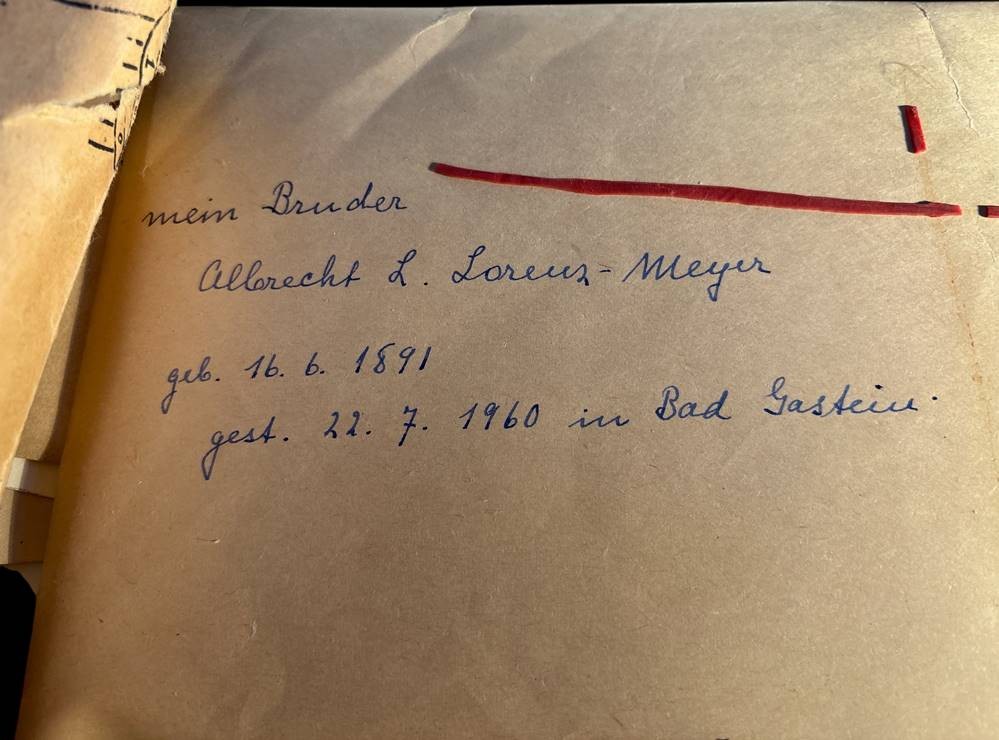 mein Bruder
Albrecht L. Lorenz-Meyer
geb. 16. 6. 1891
gest. 22. 7. 1960 in Bad Gastein.